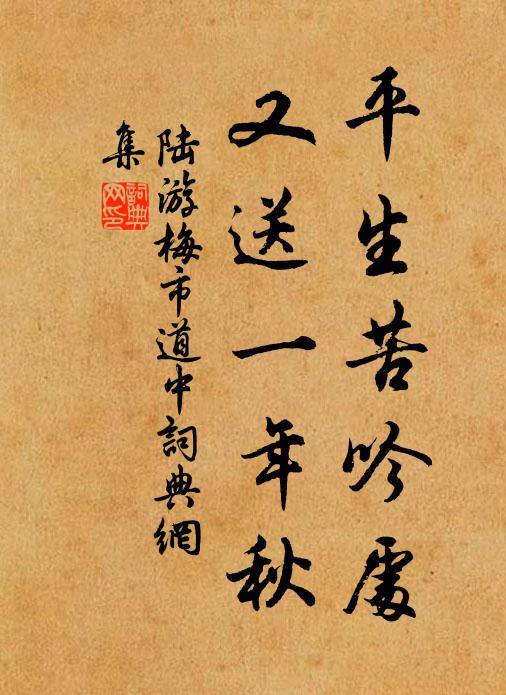 平生苦吟處
又送一年秋
陸游梅市道中詞典網
集
詞典
网印